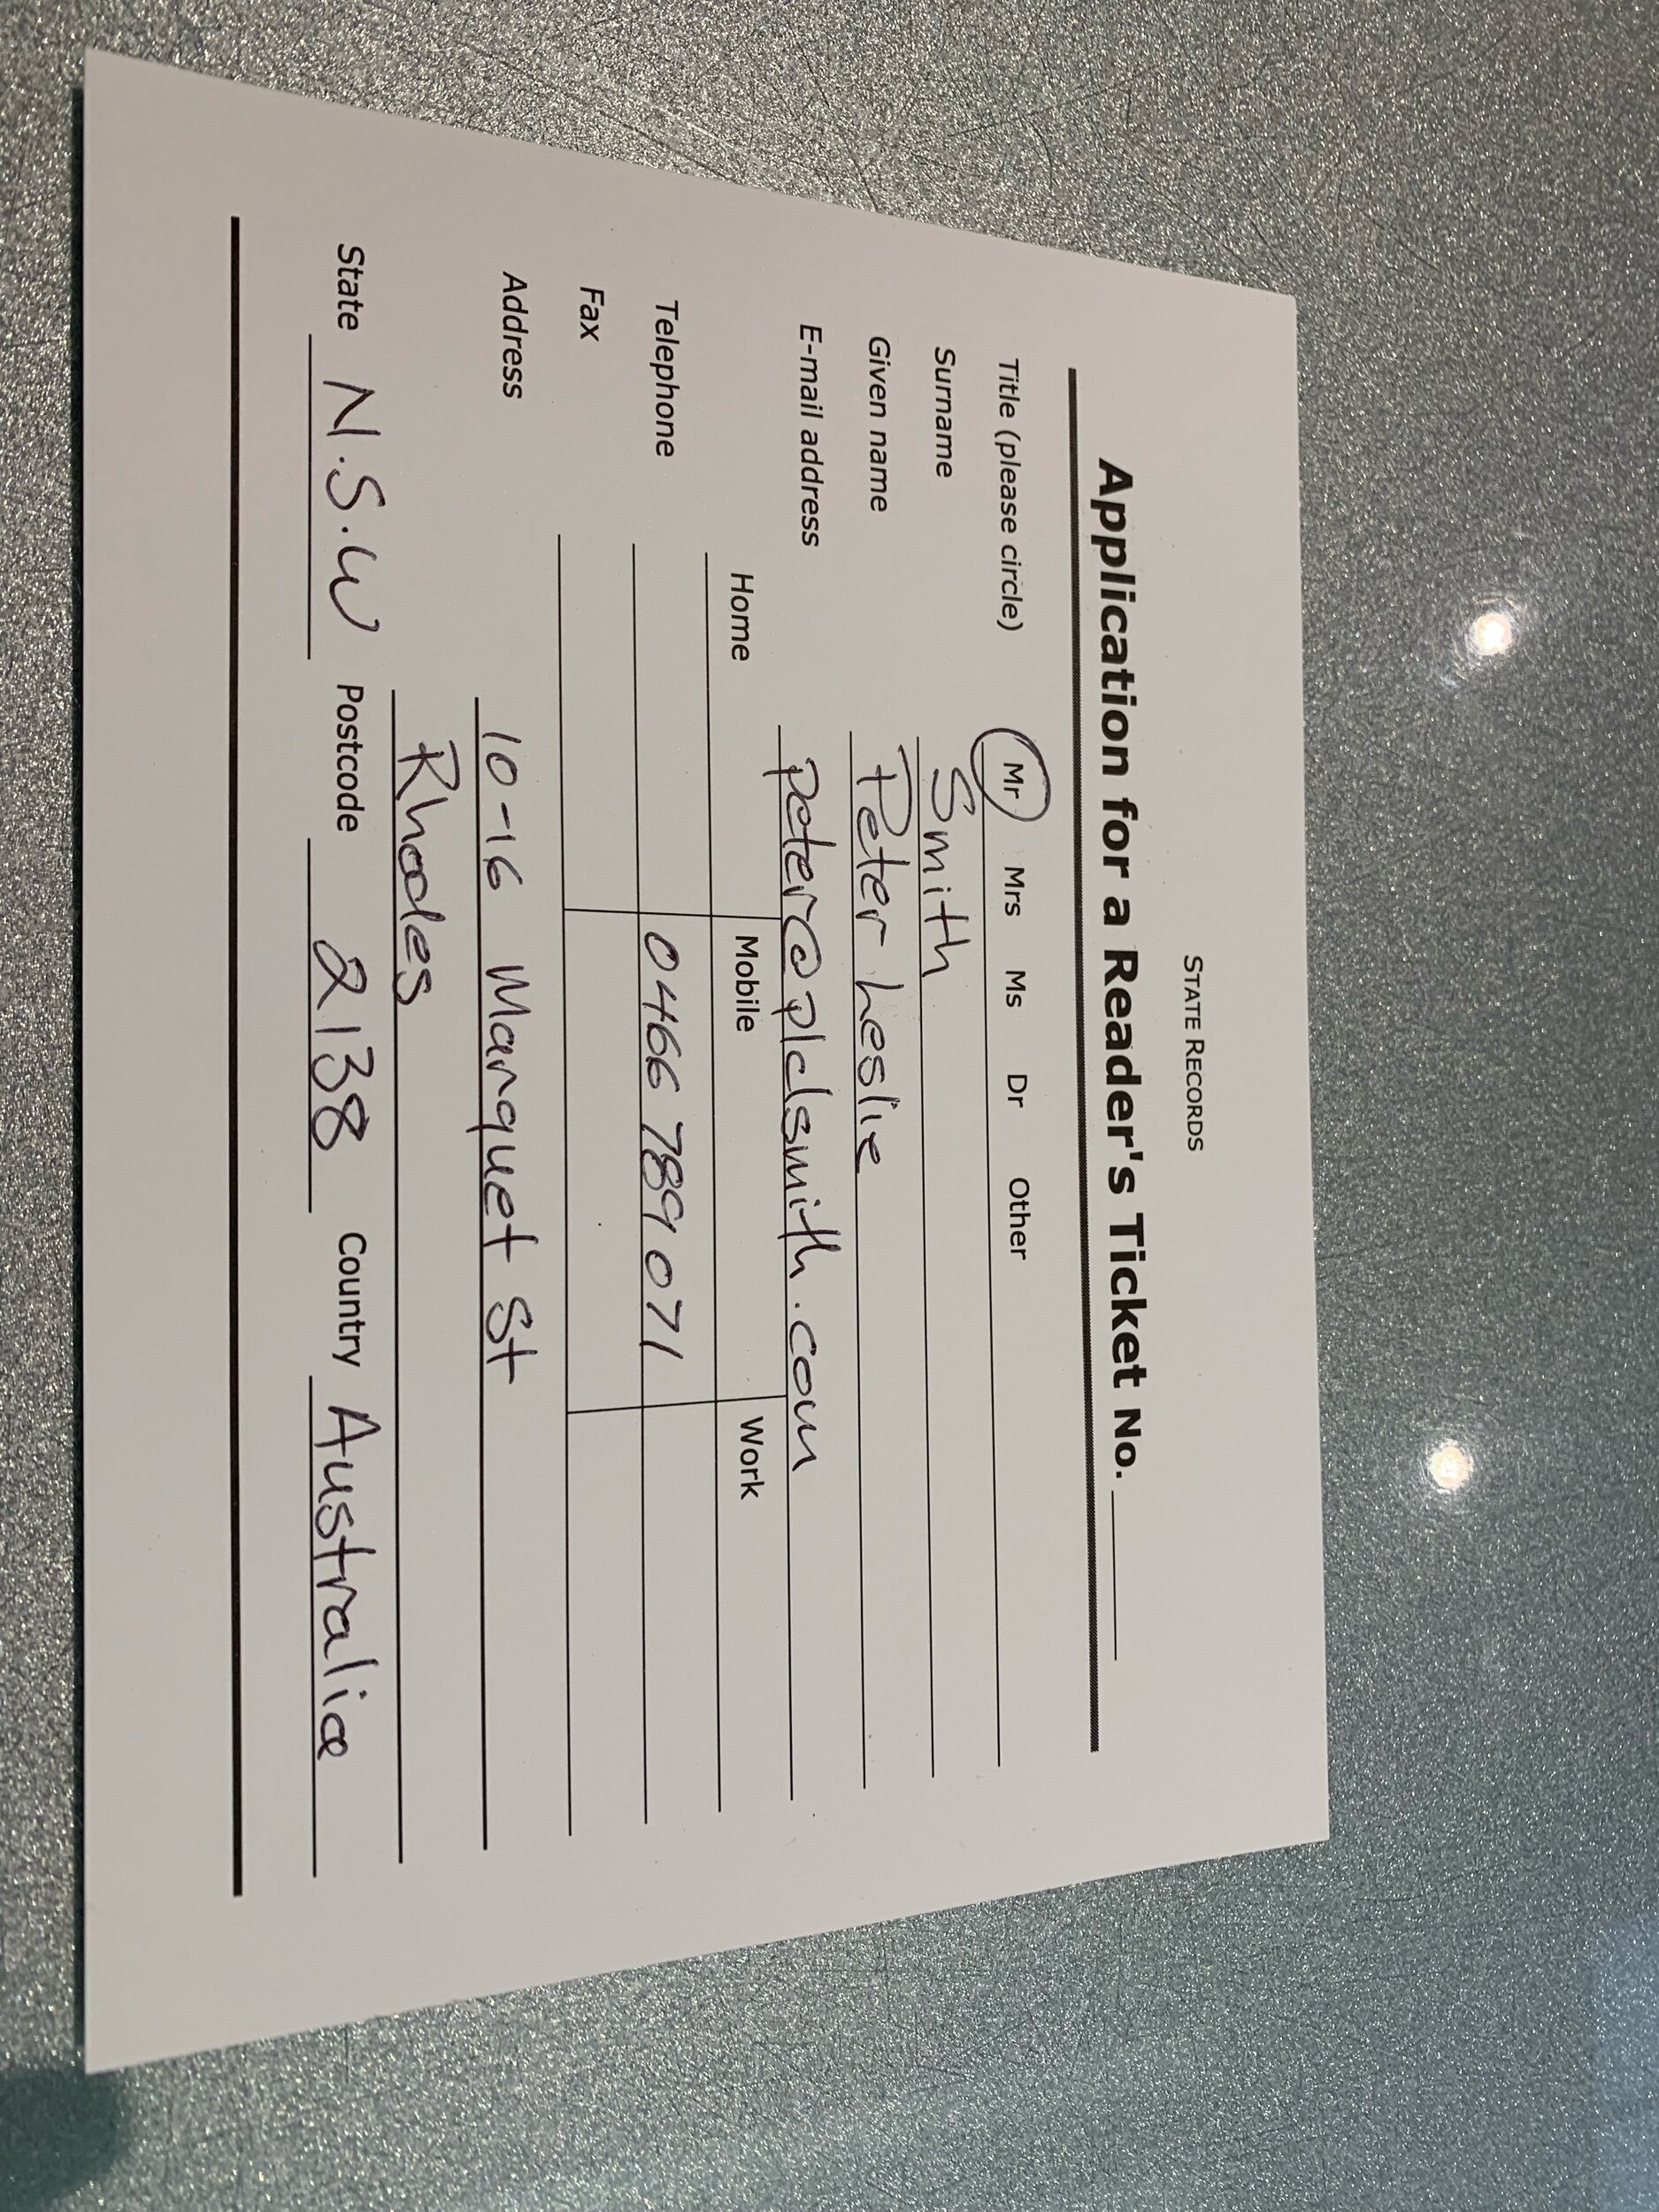 STATE RECORDS
Application for a Reader's Ticket No.
Title (please circle) Mr Mrs Ms Dr Other
Surname Smith
Given name Peter Leslie
E-mail address peter@plclsmith.com
Home Mobile Work
Telephone 0466 789 071
Fax
Address 10-16 Marquet St
Rhodes
State N.S.W Postcode 2138 Country Australia